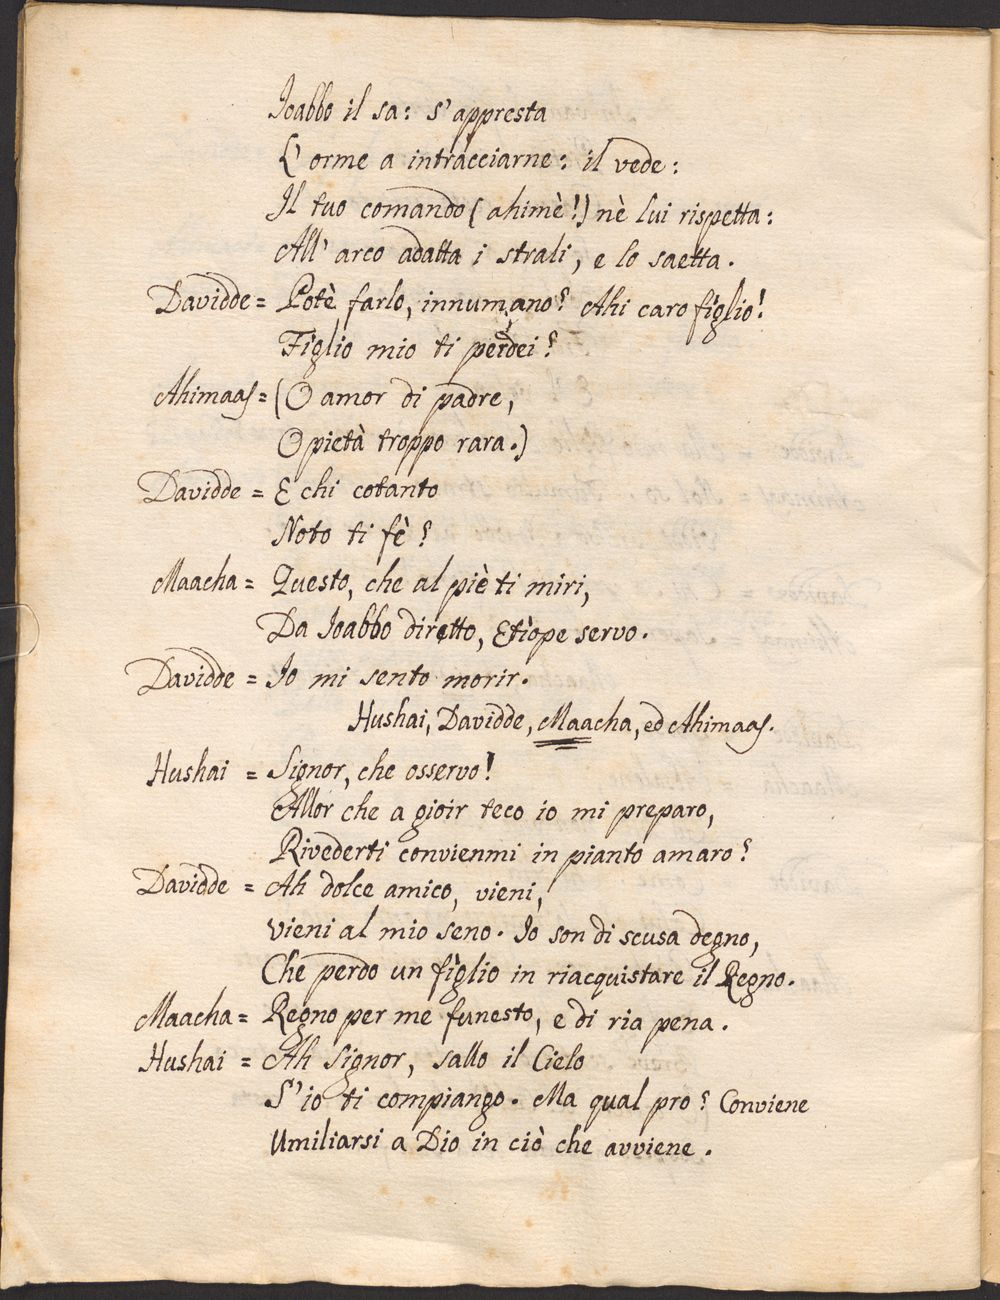 Joabbo il sa: s'appresta
L'orme a intracciarne: il vede:
Il tuo comando (ahimè!) nè lui rispetta:
All'arco adatta i strali, e lo saetta.
Davidde = Potè farlo, innumano? Ahi caro figlio!
Figlio mio ti perdei?
Ahimaas = (O amor di padre,
O pietà troppo rara.)
Davidde = E chi cotanto
Noto ti fè?
Maacha = Questo, che al piè ti miri,
Da Joabbo diretto, Etìope servo.
Davidde = Io mi sento morir.
Hushai, Davidde, Maacha, ed Ahimaas.
Hushai = Signor, che osservo!
Allor che a gioir teco io mi preparo,
Rivederti convienmi in pianto amaro?
Davidde = Ah dolce amico, vieni,
vieni al mio seno. Io son di scusa degno,
Che perdo un figlio in riacquistare il Regno.
Maacha = Regno per me funesto, e di ria pena.
Hushai = Ah Signor, sallo il Cielo
S'io ti compiango. Ma qual pro? Conviene
Umiliarsi a Dio in ciò che avviene.